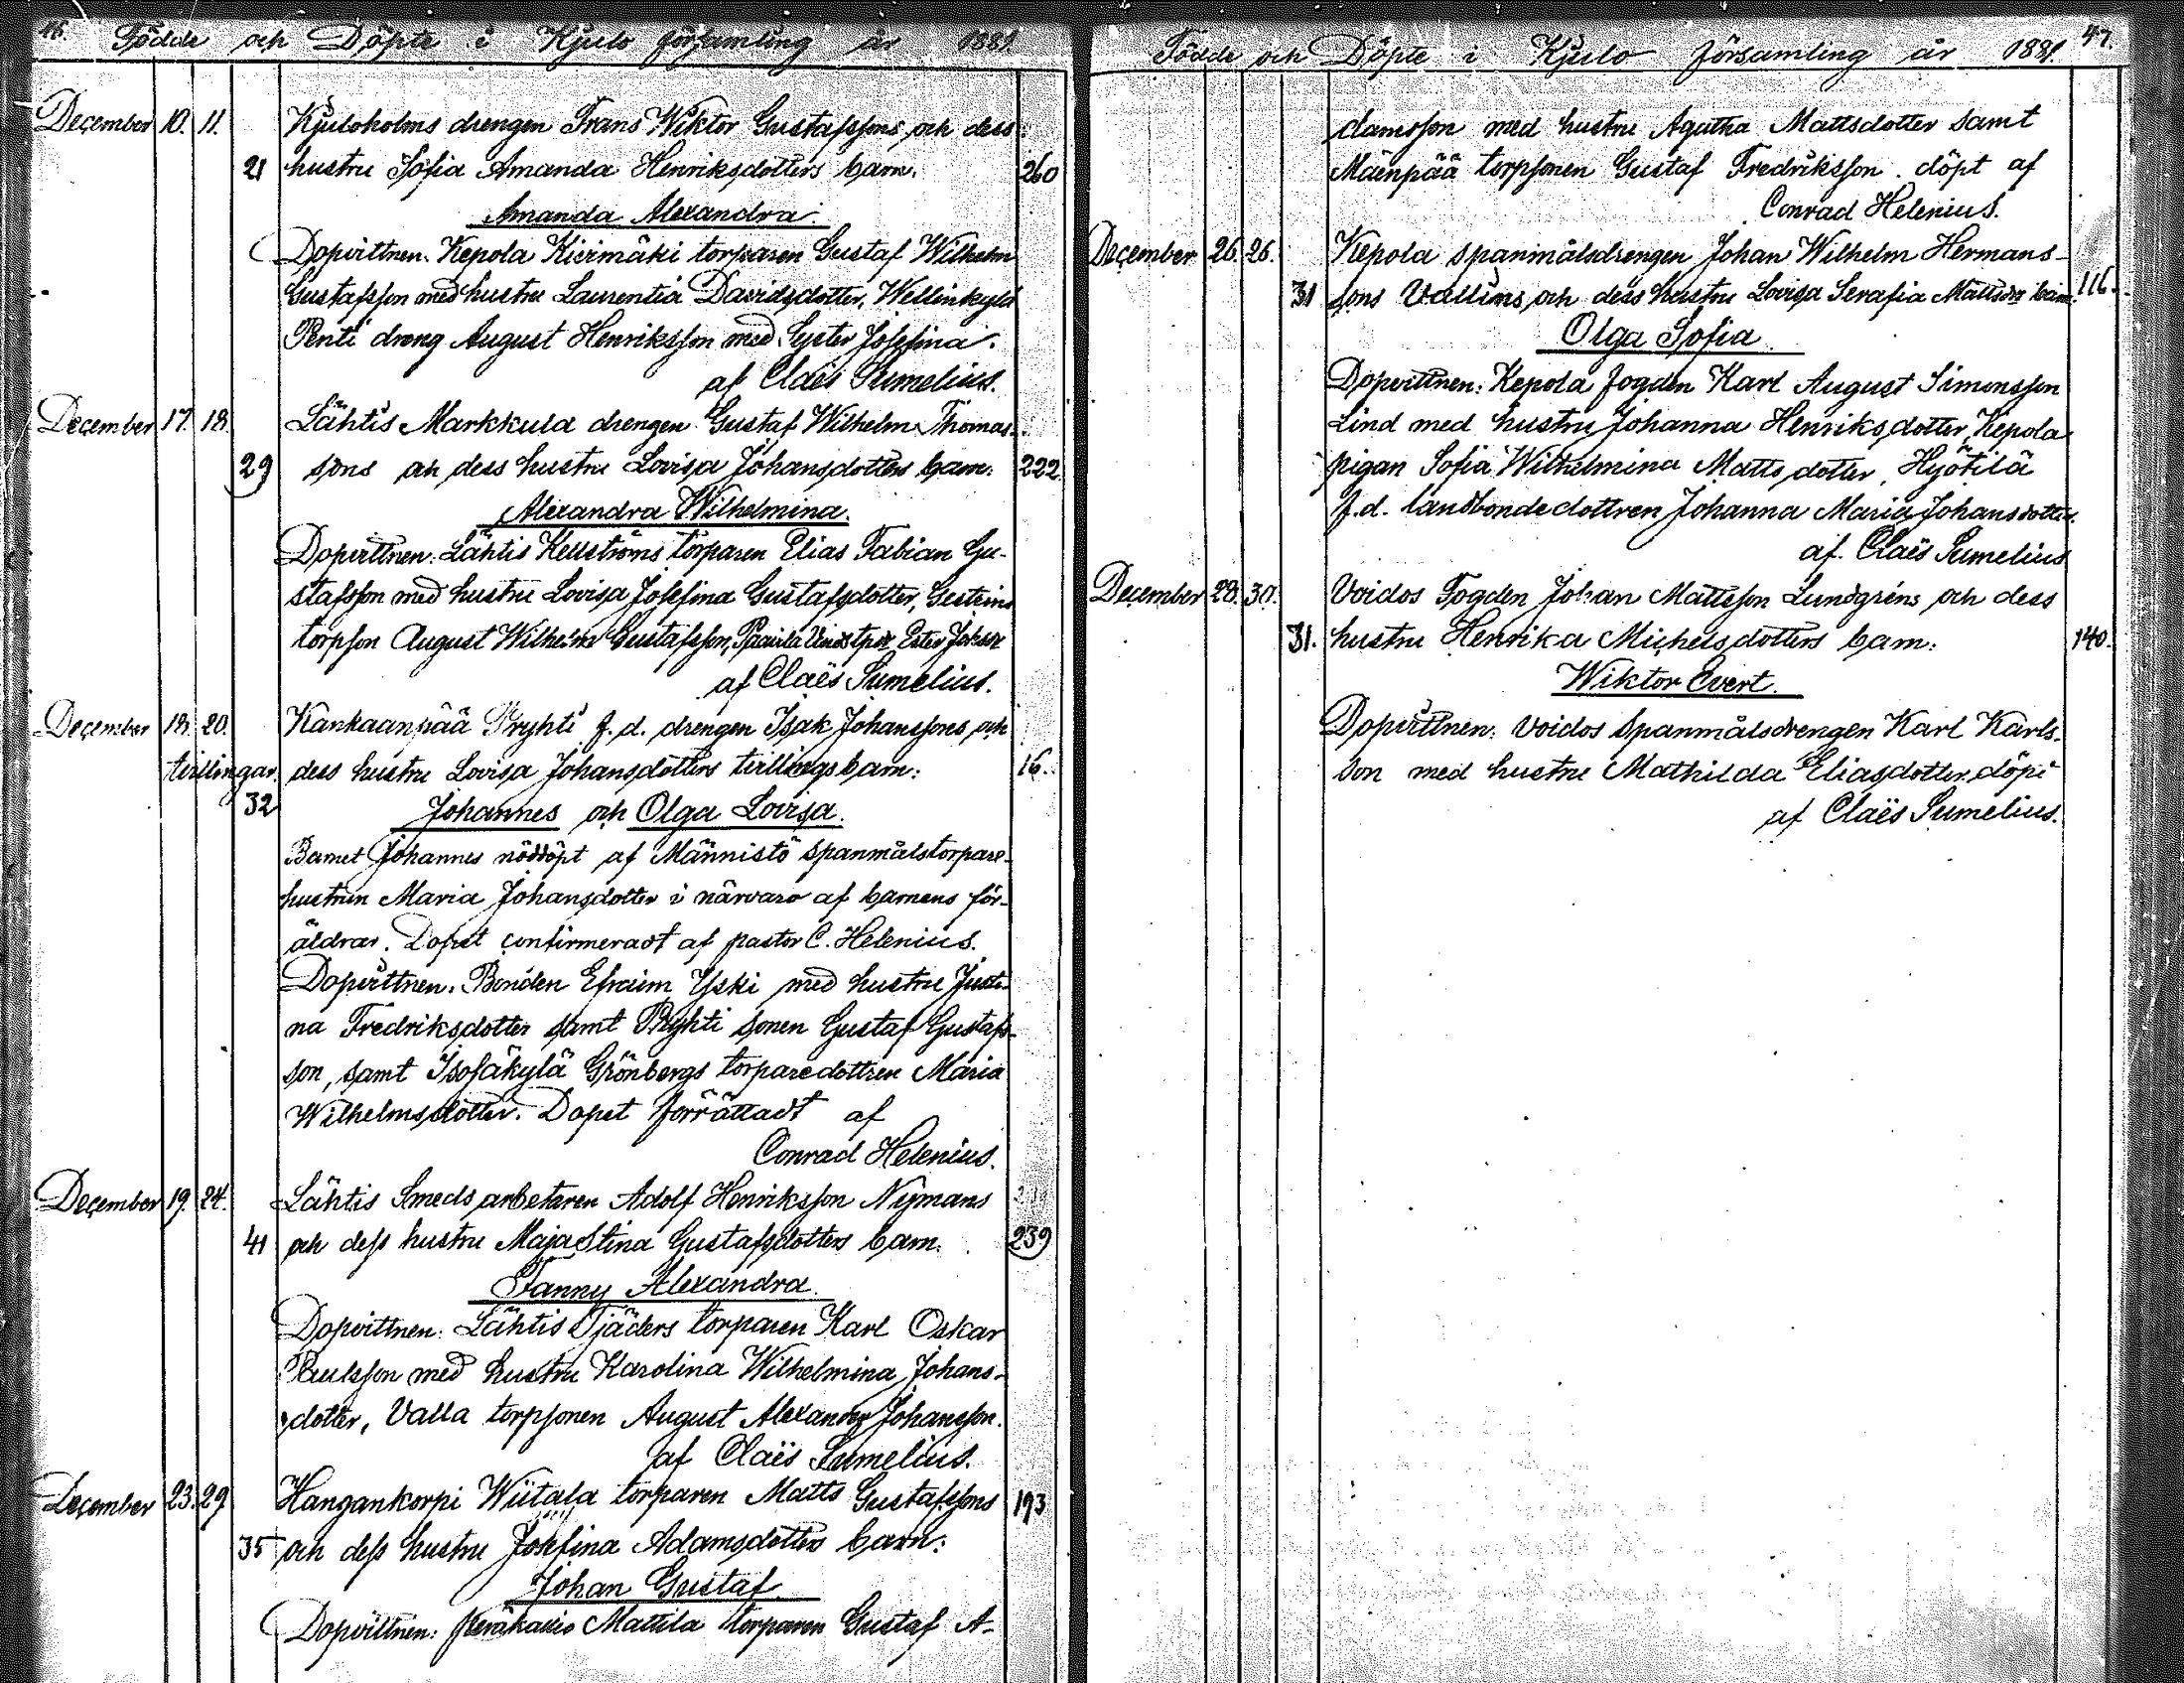 46. Födde och Döpte i Kjulo församling år 1881.
December 10. 11. Kjuloholms drengen Frans Wiktor Gustafssons och dess
21 hustru Sofia Amanda Henriksdotters barn. 260
Amanda Alexandra.
Dopvittnen. Kepola Kivimäki torparen Gustaf Wilhelm
Gustafsson med hustru Laurentia Davidsdotter, Wellinkylä
Penti dreng August Henriksson med Syster Josefina.
af Claës Sumelius.
December 17. 18. Lähtis Markkula drengen Gustaf Wilhelm Thomas-
29 sons och dess hustru Lovisa Johansdotters barn: 222.
Alexandra Wilhelmina.
Dopvittnen: Lähtis Kellströms torparen Elias Fabian Gu-
stafsson med hustru Lovisa Josefina Gustafsdotter,
torpson August Wilhelm Gustafsson,
af Claës Sumelius.
December 18. 20. Kankaanpää Pryhti f.d. drengen Isak Johanssons och
tvillingar. dess hustru Lovisa Johansdotters tvillingsbarn: 16.
32 Johannes och Olga Lovisa.
Barnet Johannes nöddöpt af Männistö spanmålstorpare-
hustrun Maria Johansdotter i närvaro af barnens för-
äldrar. Dopet confirmeradt af pastor C. Helenius.
Dopvittnen. Bonden Efraim Yski med hustru Justi-
na Fredriksdotter samt Pryhti sonen Gustaf Gustafs-
son, samt Isosäkylä Grönbergs torparedottren Maria
Wilhelmsdotter. Dopet förrättadt af
Conrad Helenius.
December 19. 24. Lähtis Smeds arbetaren Adolf Henriksson Nymans
41 och dess hustru Maja Stina Gustafsdotters barn. 239
Fanny Alexandra.
Dopvittnen: Lähtis Tjäders torparen Karl Oskar
Paulsson med hustru Karolina Wilhelmina Johans-
dotter, Valla torpsonen August Alexander Johansson.
af Claës Sumelius.
December 23. 29 Hangankorpi Wiitala torparen Matts Gustafssons 193
35 och dess hustru Josefina Adamsdotters barn:
Johan Gustaf
Dopvittnen: Mattila torparen Gustaf A-
Födde och Döpte i Kjulo församling år 1881. 47.
damsson med hustru Agatha Mattsdotter samt
Mäenpää torpsonen Gustaf Fredriksson. döpt af
Conrad Helenius.
December 26. 26. Kepola spanmålsdrengen Johan Wilhelm Hermans-
31 sons Vallins och dess hustru Lovisa Serafia Mattsdrs barn. 116.
Olga Sofia
Dopvittnen: Kepola fogden Karl August Simonsson
Lind med hustru Johanna Henriksdotter, Kepola
pigan Sofia Wilhelmina Mattsdotter, Hyötilä
f.d. landbondedottren Johanna Maria Johansdotter.
af. Claës Sumelius
December 28. 30. Voidos Fogden Johan Mattsson Lundgréns och dess
31. hustru Henrika Michelsdotters barn: 140.
Wiktor Evert.
Dopvittnen: Voidos Spanmålsdrengen Karl Karls-
son med hustru Mathilda Eliasdotter, döpt
af Claës Sumelius.